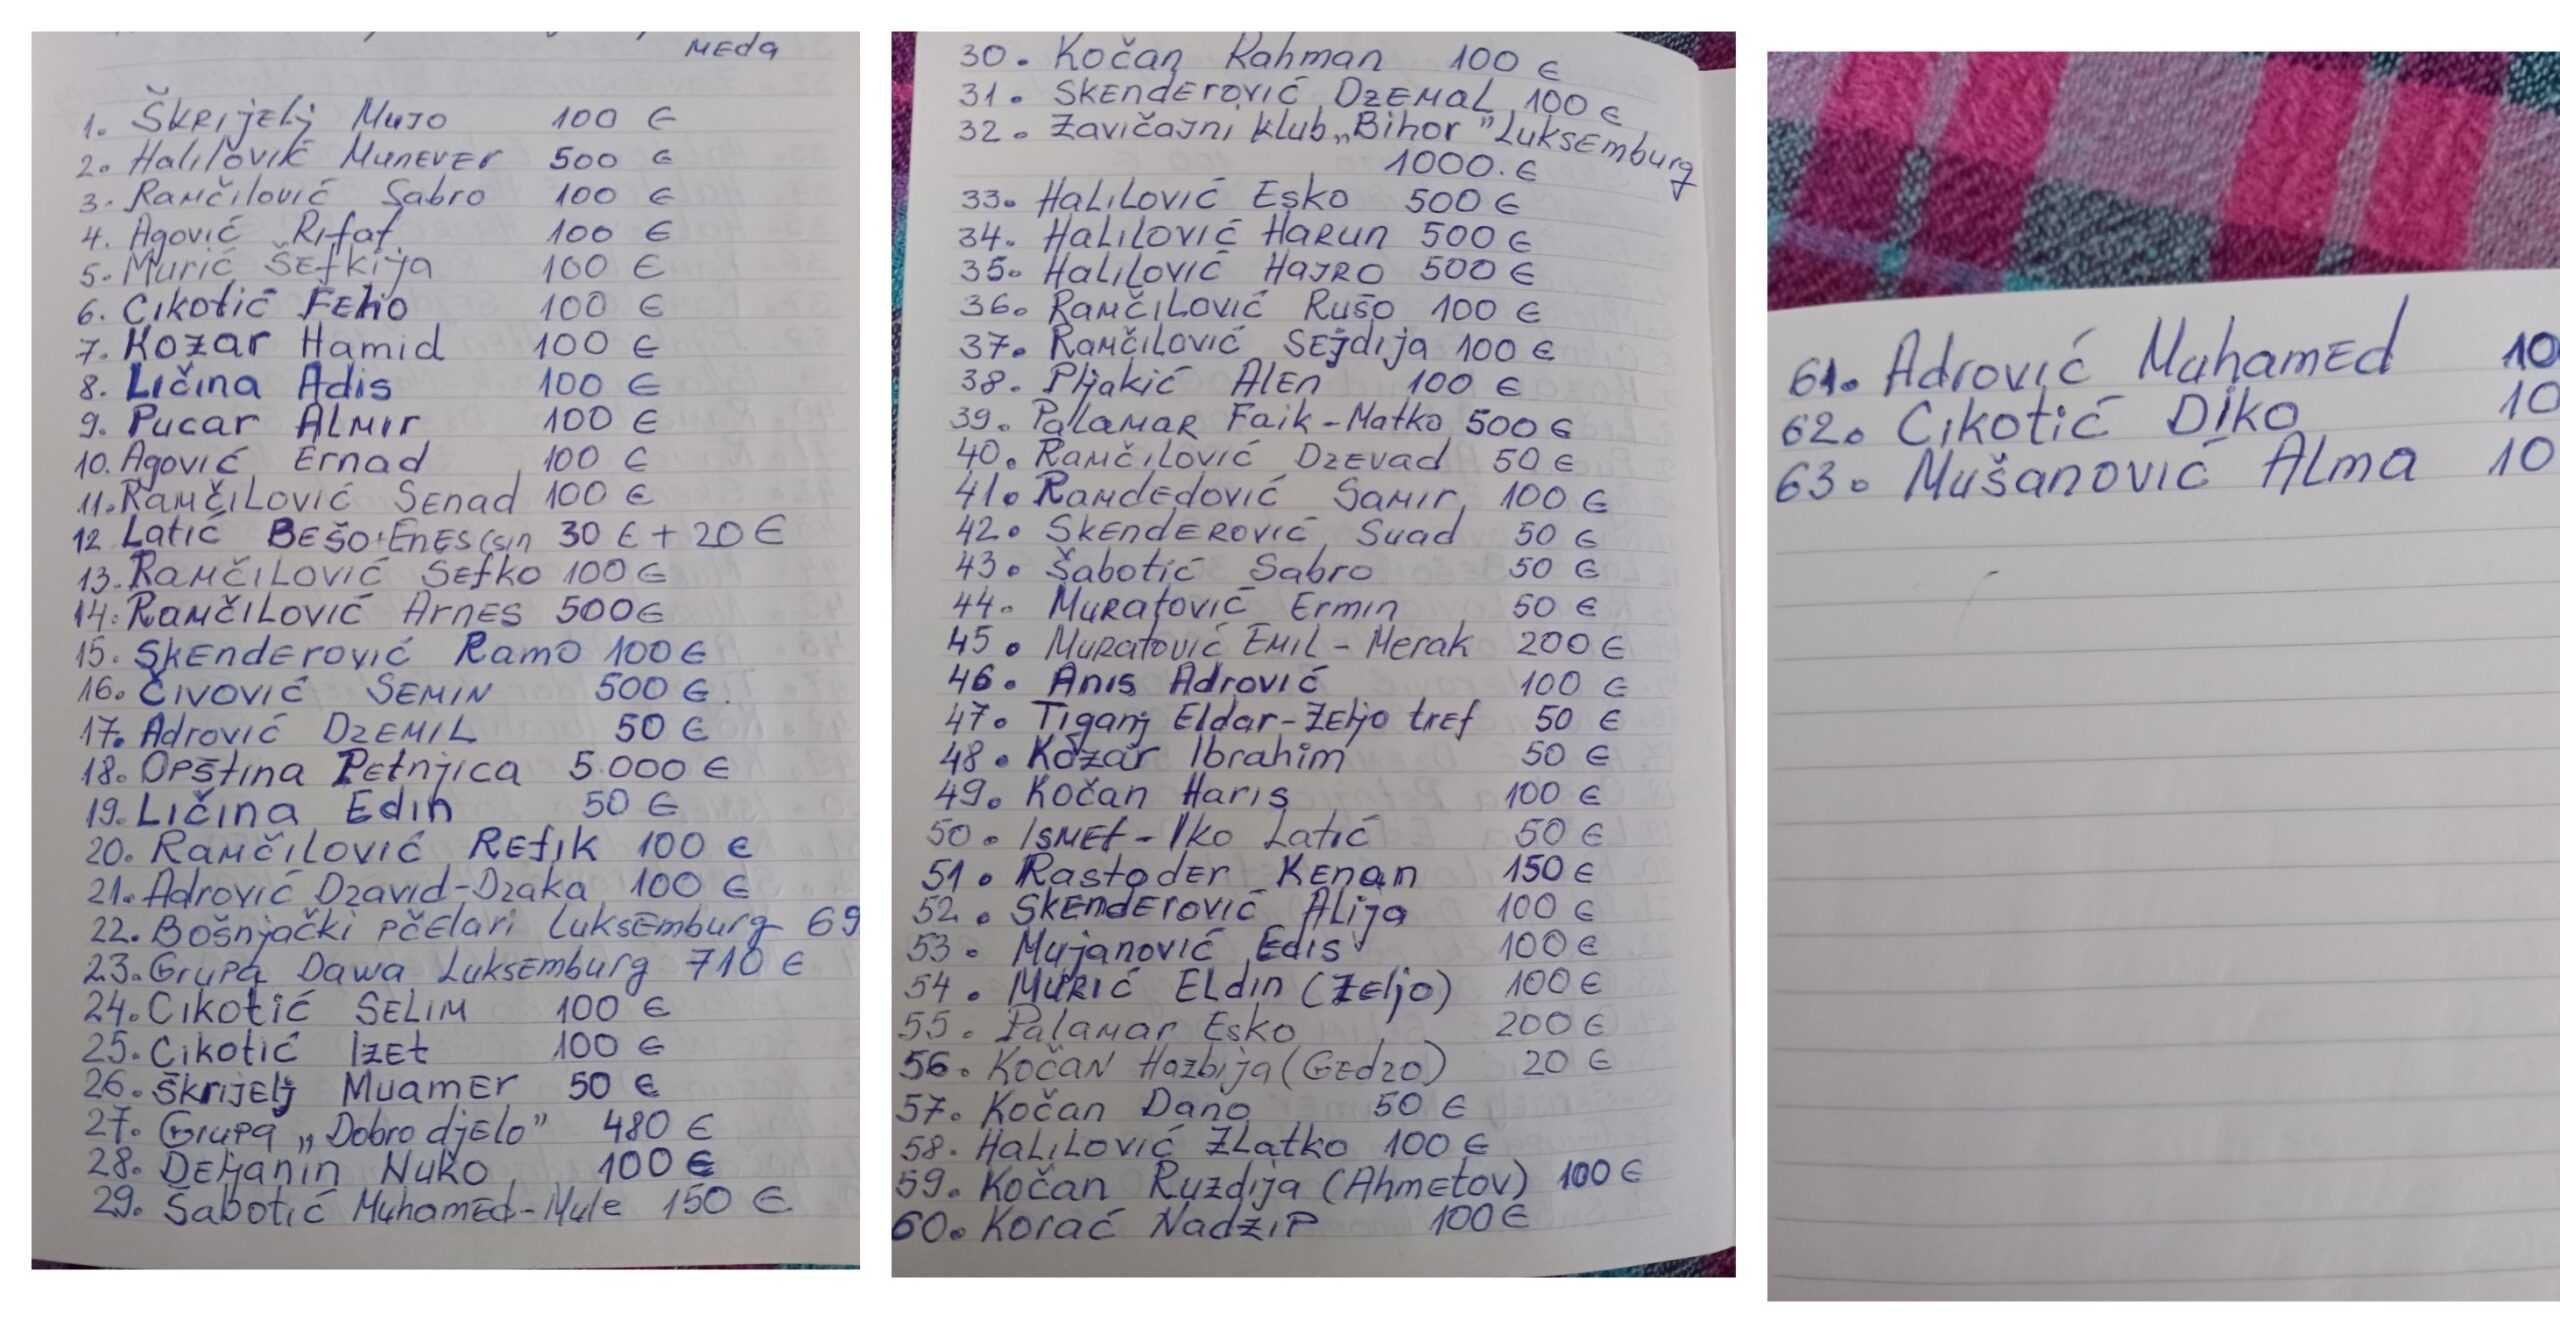 MEda
1. ŠKRIJELj MUJO 100 €
2. Halilović MUNEVER 500 €
3. Ramčilović Sabro 100 €
4. Agović Rifat 100 €
5. Murić Šefkija 100 €
6. Cikotić Feho 100 €
7. Kozar Hamid 100 €
8. Ličina Adis 100 €
9. Pucar ALMIR 100 €
10. Agović Ernad 100 €
11. RAMČILOVIĆ Senad 100 €
12 Latić BEŠO+ENES (sin 30 € + 20 €
13. RAMČILOVIĆ Sefko 100 €
14. RAMČILOVIĆ ARNES 500 €
15. SKENDEROVIĆ RAMO 100 €
16. ČIVOVIĆ SEMIN 500 €
17. Adrović DZEMIL 50 €
18. OPŠtina PEtnjica 5.000 €
19. LIČINA Edin 50 €
20. RAMČILOVIĆ REFIK 100 €
21. Adrović Dzavid-Dzaka 100 €
22. Bošnjački pčElari LuksEmburg 69
23. Grupa Dawa LuksEmburg 710 €
24. Cikotić SELIM 100 €
25. Cikotić IzEt 100 €
26. ŠkrijElj MuamEr 50 €
27. Grupa „Dobro djelo” 480 €
28. DEljanin Nuko 100 €
29. Šabotić MuhamEd-Mule 150 €
30. Kočan Rahman 100 €
31. SKENdErović DzEMAL 100 €
32. Zavičajni klub „Bihor” LuksEmburg
1000.€
33. HALILOVIĆ Esko 500 €
34. HALILOVIĆ HARUN 500 €
35. HALILOVIĆ HAJRO 500 €
36. RAMČILOVIĆ Rušo 100 €
37. RAMČILOVIĆ SEjdija 100 €
38. Pljakić ALEN 100 €
39. PaLAMAR Faik-Matko 500 €
40. RAMČILOVIĆ DzEvad 50 €
41. RAMDEDOVIĆ SAMIR 100 €
42. SKENDEROVIĆ Suad 50 €
43. Šabotić Sabro 50 €
44. MURAtović Ermin 50 €
45. MURAtović EMIL-Merak 200 €
46. Anis Adrović 100 €
47. Tiganj Eldar-ZEljo trEf 50 €
48. Kozar Ibrahim 50 €
49. Kočan Haris 100 €
50. ISMEt-Iko Latić 50 €
51. RastodEr KEnan 150 €
52. SKEndErović ALija 100 €
53. Mujanović Edis 100 €
54. MURIĆ ELdin (ZEljo) 100 €
55. Palamar Esko 200 €
56. KočAN Hazbija (GEdzo) 20 €
57. Kočan Dano 50 €
58. HALILOVIĆ ZLatko 100 €
59. Kočan Ruzdija (Ahmetov) 100 €
60. Korać NadžIP 100 €
61. Adrović MuhamEd 10
62. Cikotić Diko 10
63. Mušanović Alma 10